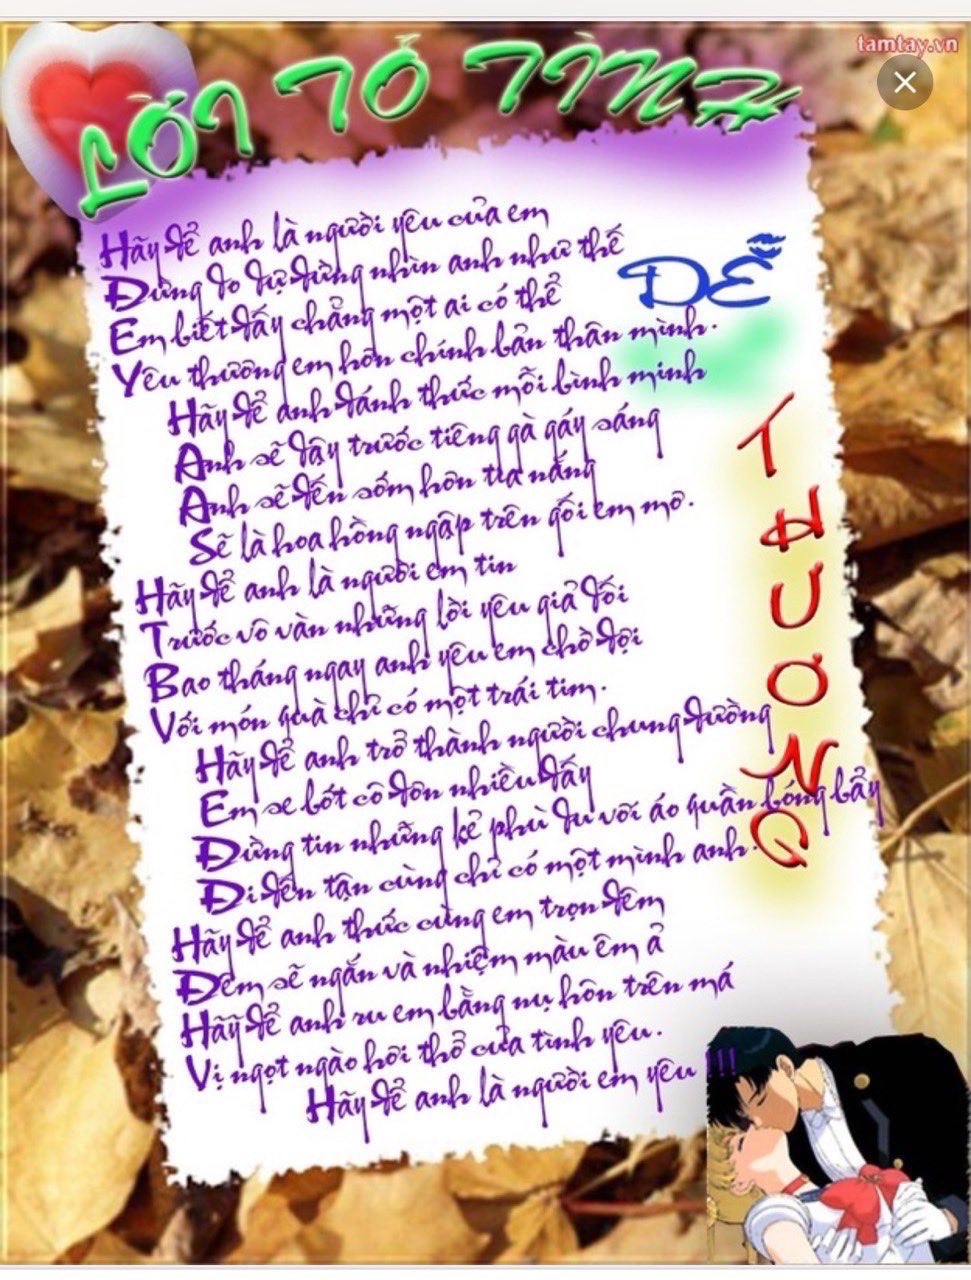 tamtay.vn
LỜI TỎ TÌNH
DỄ THƯƠNG
Hãy để anh là người yêu của em
Đừng do dự đừng nhìn anh như thế
Em biết đấy chẳng một ai có thể
Yêu thương em hơn chính bản thân mình.
Hãy để anh đánh thức mỗi bình minh
Anh sẽ dậy trước tiếng gà gáy sáng
Anh sẽ đến sớm hơn tia nắng
Sẽ là hoa hồng ngập trên gối em mơ.
Hãy để anh là người em tin
Trước vô vàn những lời yêu giả dối
Bao tháng ngay anh yêu em chờ đợi
Với món quà chỉ có một trái tim.
Hãy để anh trở thành người chung đường
Em se bớt cô đơn nhiều đấy
Đừng tin những kẻ phù du với áo quần bóng bẩy
Đi đến tận cùng chỉ có một mình anh.
Hãy để anh thức cùng em trọn đêm
Đêm sẽ ngắn và nhiệm màu êm ả
Hãy để anh ru em bằng nụ hôn trên má
Vị ngọt ngào hơi thở của tình yêu.
Hãy để anh là người em yêu !!!